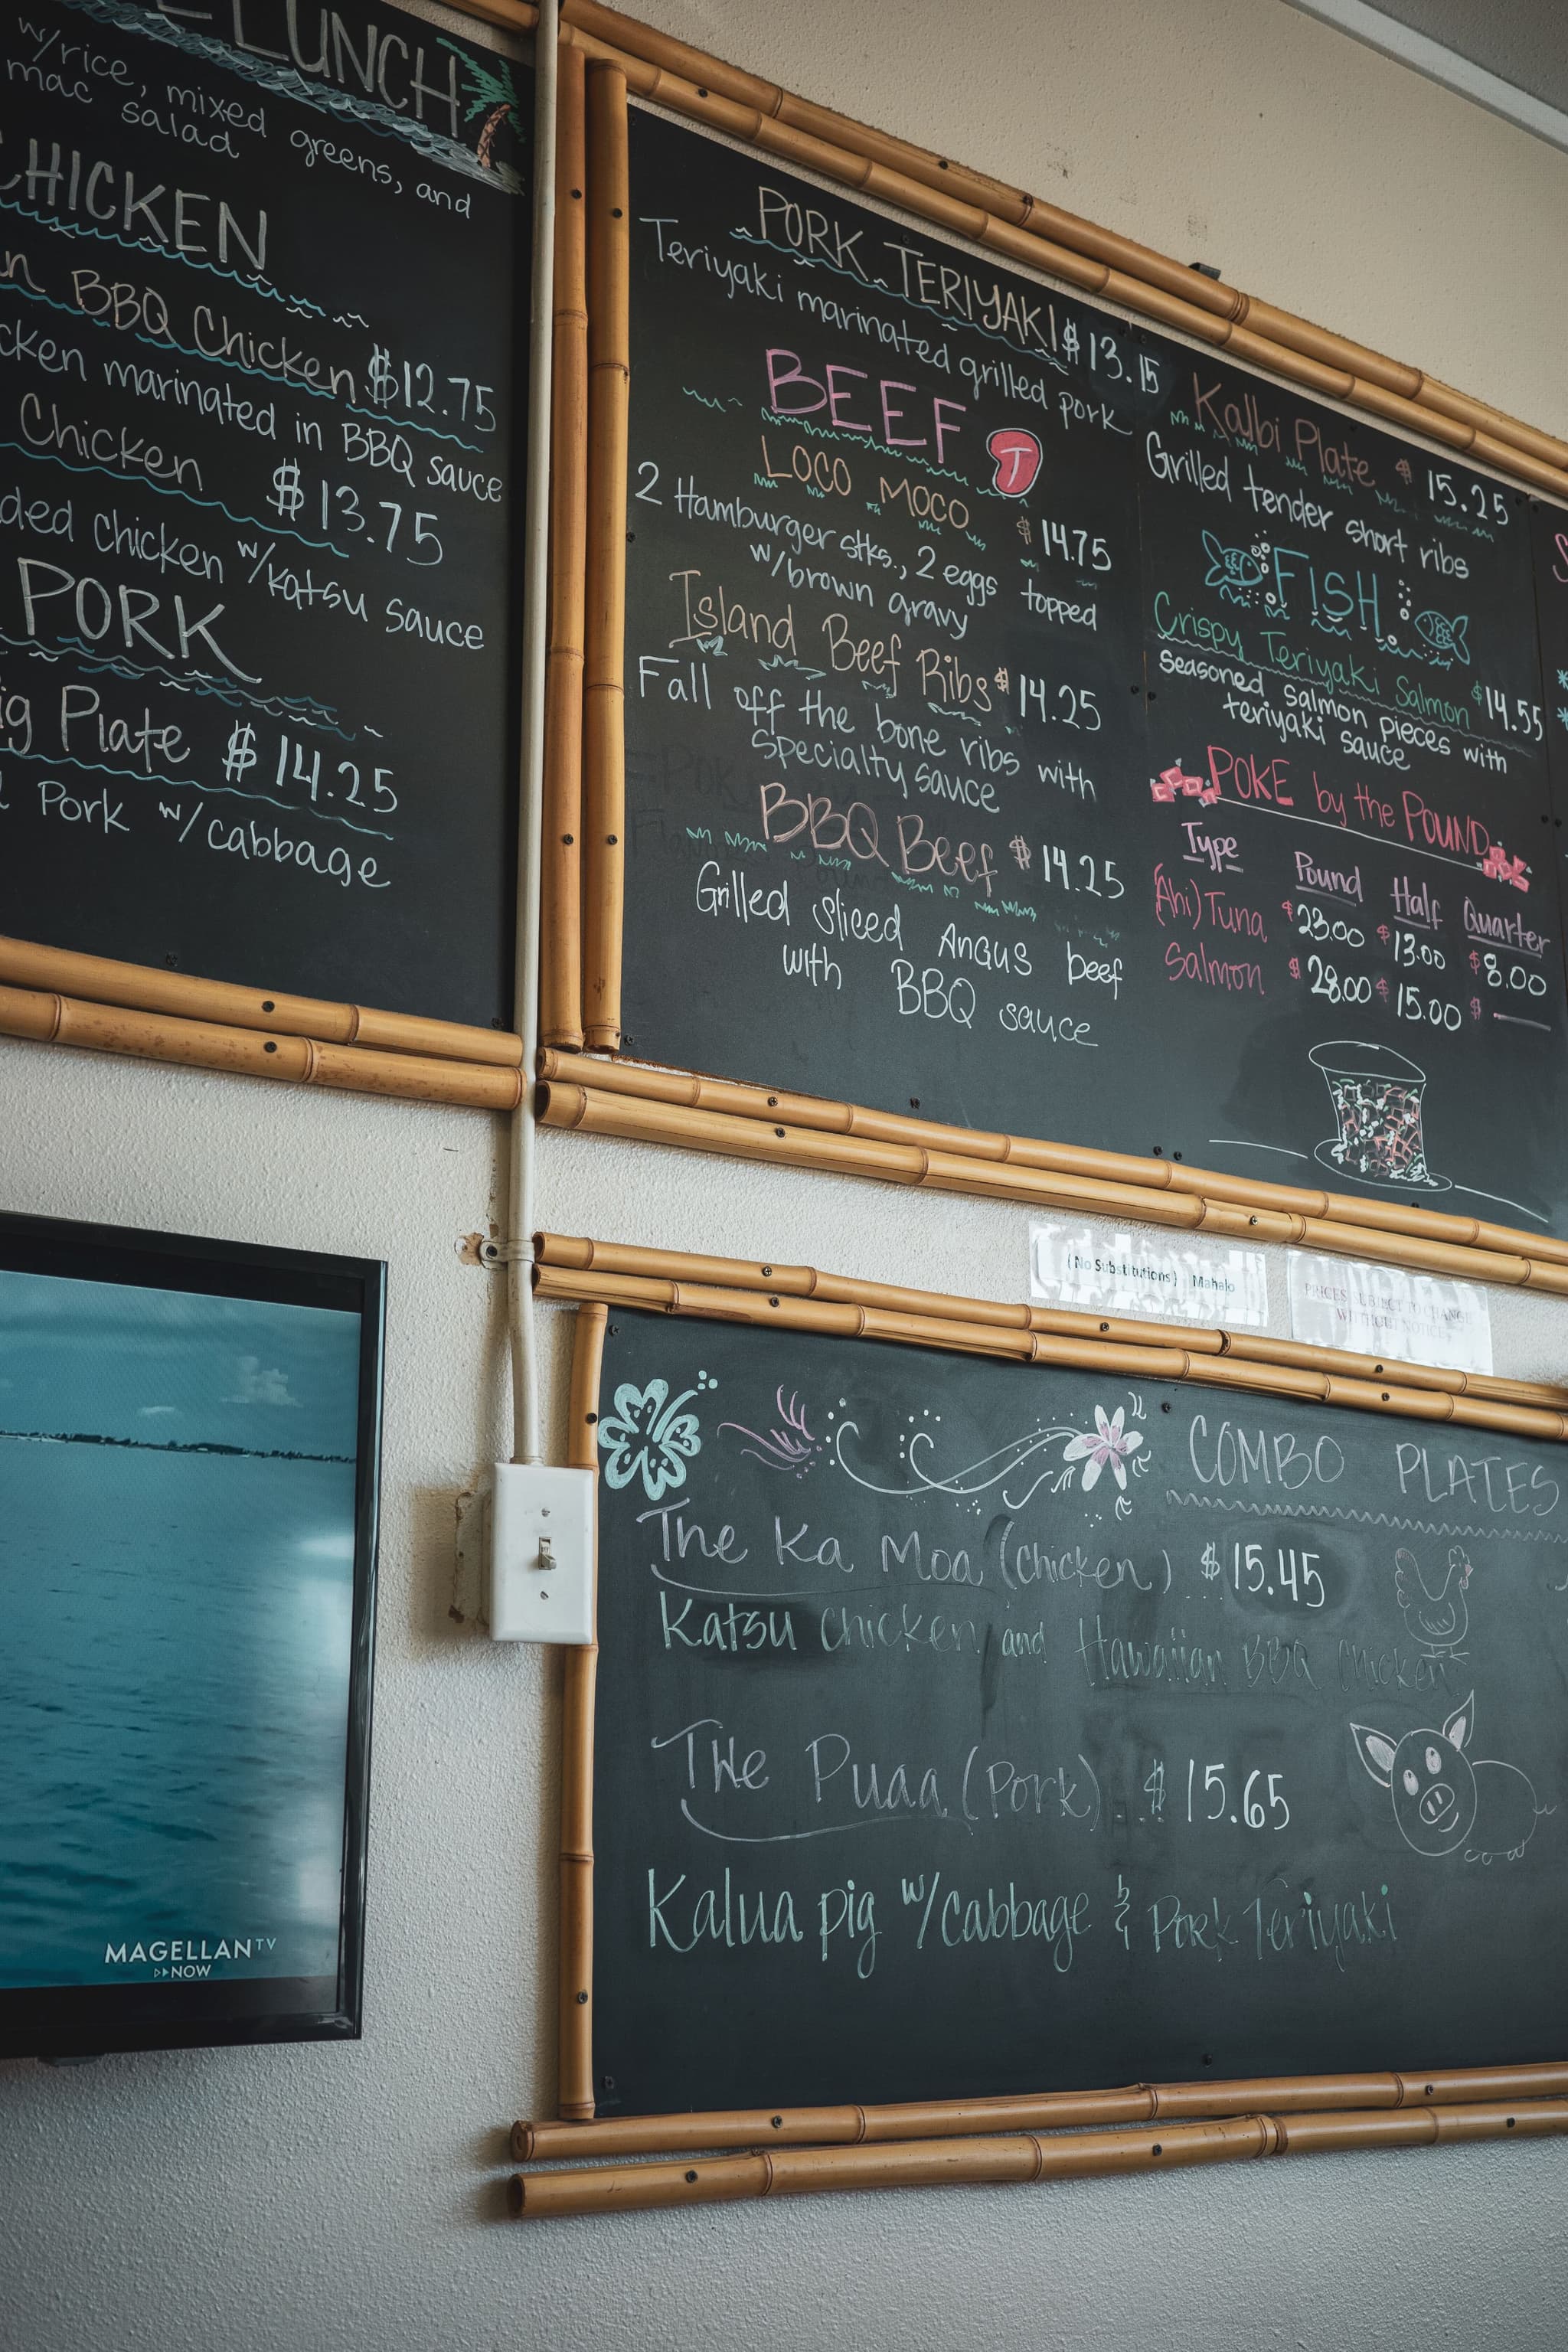 LUNCH
w/rice, mixed greens, and
mac salad
CHICKEN
BBQ Chicken $12.75
marinated in BBQ sauce
Chicken $13.75
chicken w/katsu sauce
PORK
Plate $14.25
Pork w/cabbage
PORK TERIYAKI $13.15
Teriyaki marinated grilled pork
BEEF
T
LOCO MOCO $14.75
2 Hamburger stks., 2 eggs topped
w/brown gravy
Island Beef Ribs $14.25
Fall off the bone ribs with
specialty sauce
BBQ Beef $14.25
Grilled sliced Angus beef
with BBQ sauce
Kalbi Plate $15.25
Grilled tender short ribs
FISH
Crispy Teriyaki Salmon $14.55
Seasoned salmon pieces with
teriyaki sauce
POKE by the POUND
Type Pound Half Quarter
(Ahi) Tuna $23.00 $13.00 $8.00
Salmon $28.00 $15.00 $
(No Substitutions) Mahalo
PRICES SUBJECT TO CHANGE
WITHOUT NOTICE
COMBO PLATES
The Ka Moa (Chicken) $15.45
Katsu Chicken and Hawaiian BBQ Chicken
The Puaa (Pork) $15.65
Kalua pig w/cabbage & Pork Teriyaki
MAGELLANTV
NOW